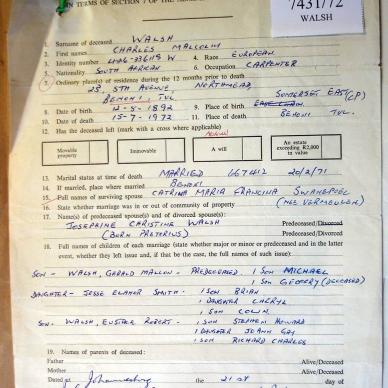 7431/72
WALSH
IN TERMS OF SECTION 7 OF THE
1. Surname of deceased WALSH
2. First names CHARLES MALCOLM
3. Identity number 4. Race EUROPEAN
5. Nationality SOUTH AFRICAN 6. Occupation CARPENTER
7. Ordinary place(s) of residence during the 12 months prior to death
28, 5TH AVENUE, NORTHMEAD,
BENONI, TVL.
SOMERSET EAST (CP)
8. Date of birth 12-5-1892 9. Place of birth
10. Date of death 15-7-1972 11. Place of death BENONI TVL.
12. Has the deceased left (mark with a cross where applicable)
Movable property
Immovable
A will
An estate exceeding R2,000 in value
13. Marital status at time of death MARRIED 667412 20/2/71
14. If married, place where married BENONI
15. Full names of surviving spouse CATRINA MARIA FRANCINA SWANEPOEL
16. State whether marriage was in or out of community of property (NEE VERMEULEN)
17. Name(s) of predeceased spouse(s) and of divorced spouse(s):
JOSEPHINE CHRISTINE WALSH Predeceased/Divorced
(BORN PRETORIUS) Predeceased/Divorced
18. Full names of children of each marriage (state whether major or minor or predeceased and in the latter
event, whether they left issue and, if that be the case, the full names of such issue):
SON - WALSH, GARALD MALCOLM - PREDECEASED. 1 SON MICHAEL
1 SON GEOFFERY (DECEASED)
DAUGHTER - JESSE ELANOR SMITH - 1 SON BRIAN
1 DAUGHTER CHERYL
1 SON COLIN
SON. WALSH, ROBERT - 1 SON STEPHEN HOWARD
1 DAUGHTER JOANN GAY
1 SON RICHARD CHARLES
19. Names of parents of deceased:
Father Alive/Deceased
Mother Alive/Deceased
Dated at Johannesburg the 21st day of